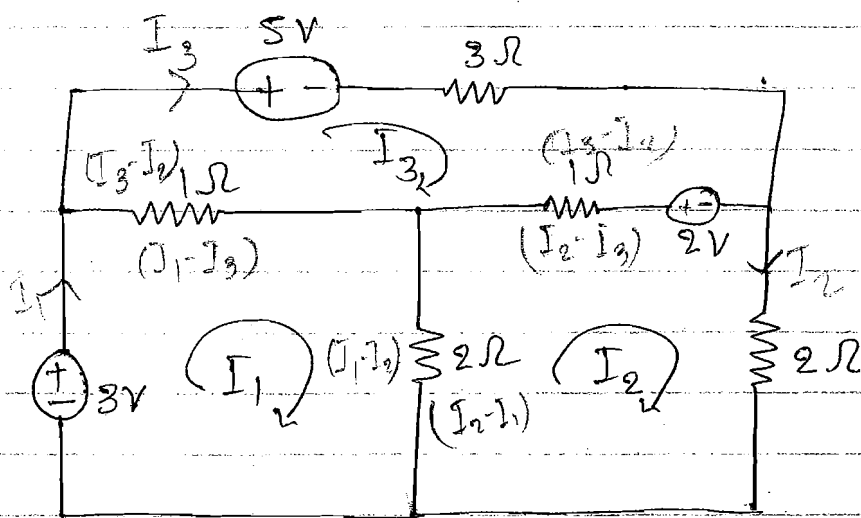 I₃ 5V 3Ω
+ -
I₃
(I₃-I₂) 1Ω (I₃-I₂) 1Ω
+ -
(I₁-I₃) (I₂-I₃) 2V
I₁ I₂
+ - 3V I₁ (I₁-I₂) 2Ω I₂ 2Ω
(I₂-I₁)